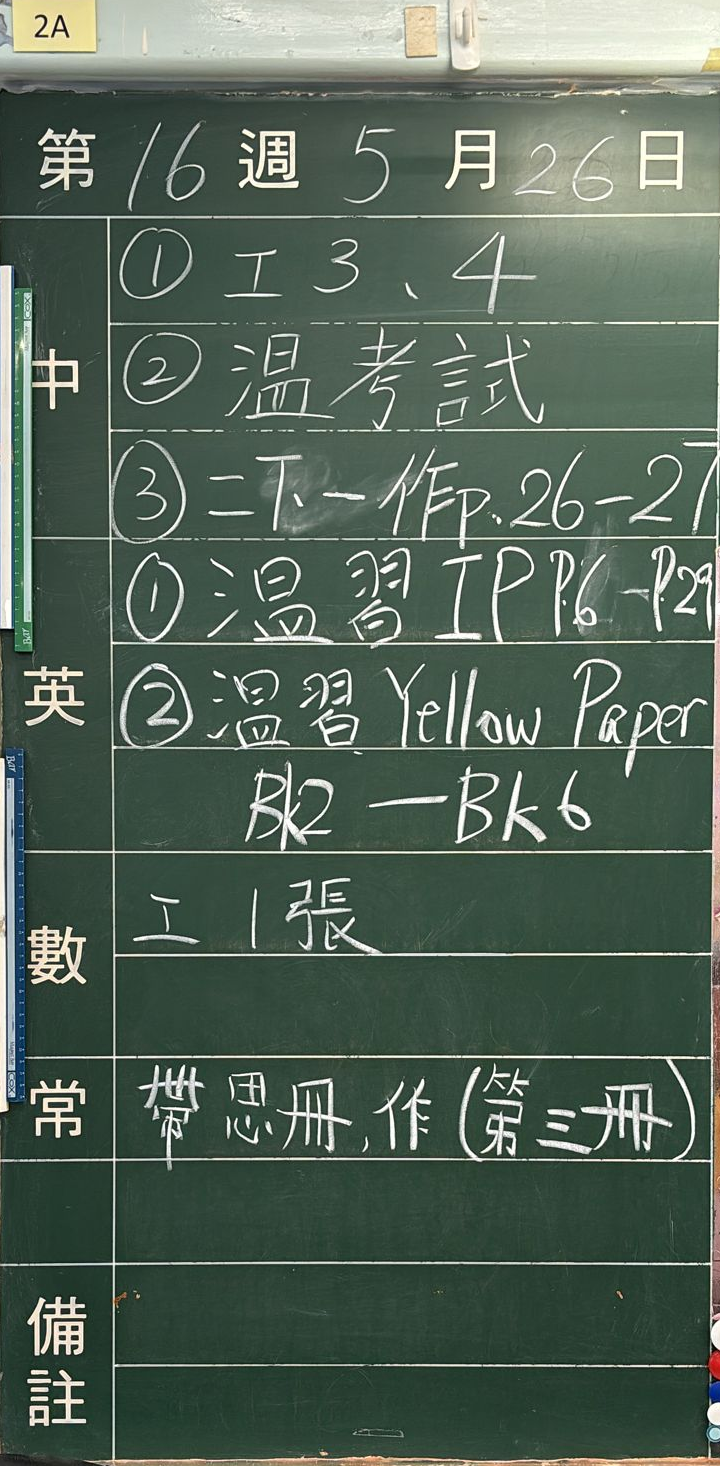 2A
第 16 週 5 月 26 日
中
① 工 3、4
② 温考試
③ 二下一作p.26-27
英
① 温習 IP P.6-P.29
② 温習 Yellow Paper
Bk2 — Bk6
數
工 1 張
常
帶思冊,作(第三冊)
備註